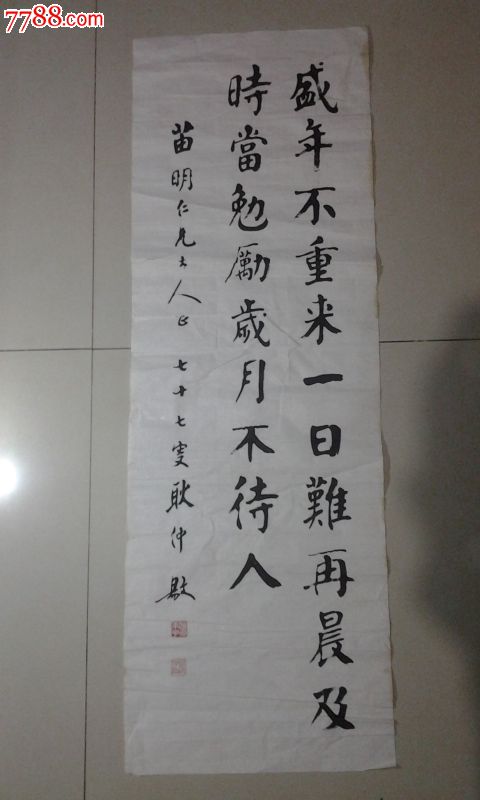 7788.com
盛年不重来一日難再晨及
時當勉勵歲月不待人
苗明仁兄大人正 七十七叟耿仲敭